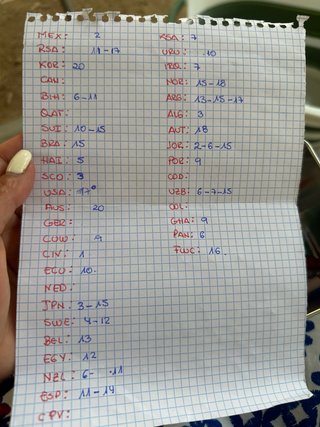 MEX: 2
RSA: 11-17
KOR: 20
CAN:
BIH: 6-11
QAT:
SUI: 10-15
BRA: 15
HAI: 5
SCO: 3
USA: 17
AUS: 20
GER:
CUW: 9
CIV: 1
ECU: 10.
NED:
JPN: 3-15
SWE: 4-12
BEL: 13
EGY: 12
NZL: 6- .11
ESP: 11-14
CPV:
KSA: 7
URU: .10
IRQ: 7
NOR: 15-18
ARG: 13-15-17
ALG: 3
AUT: 18
JOR: 2-6-15
POR: 9
COD:
UZB: 6-7-15
COL:
GHA: 9
PAN: 6
FWC: 16.